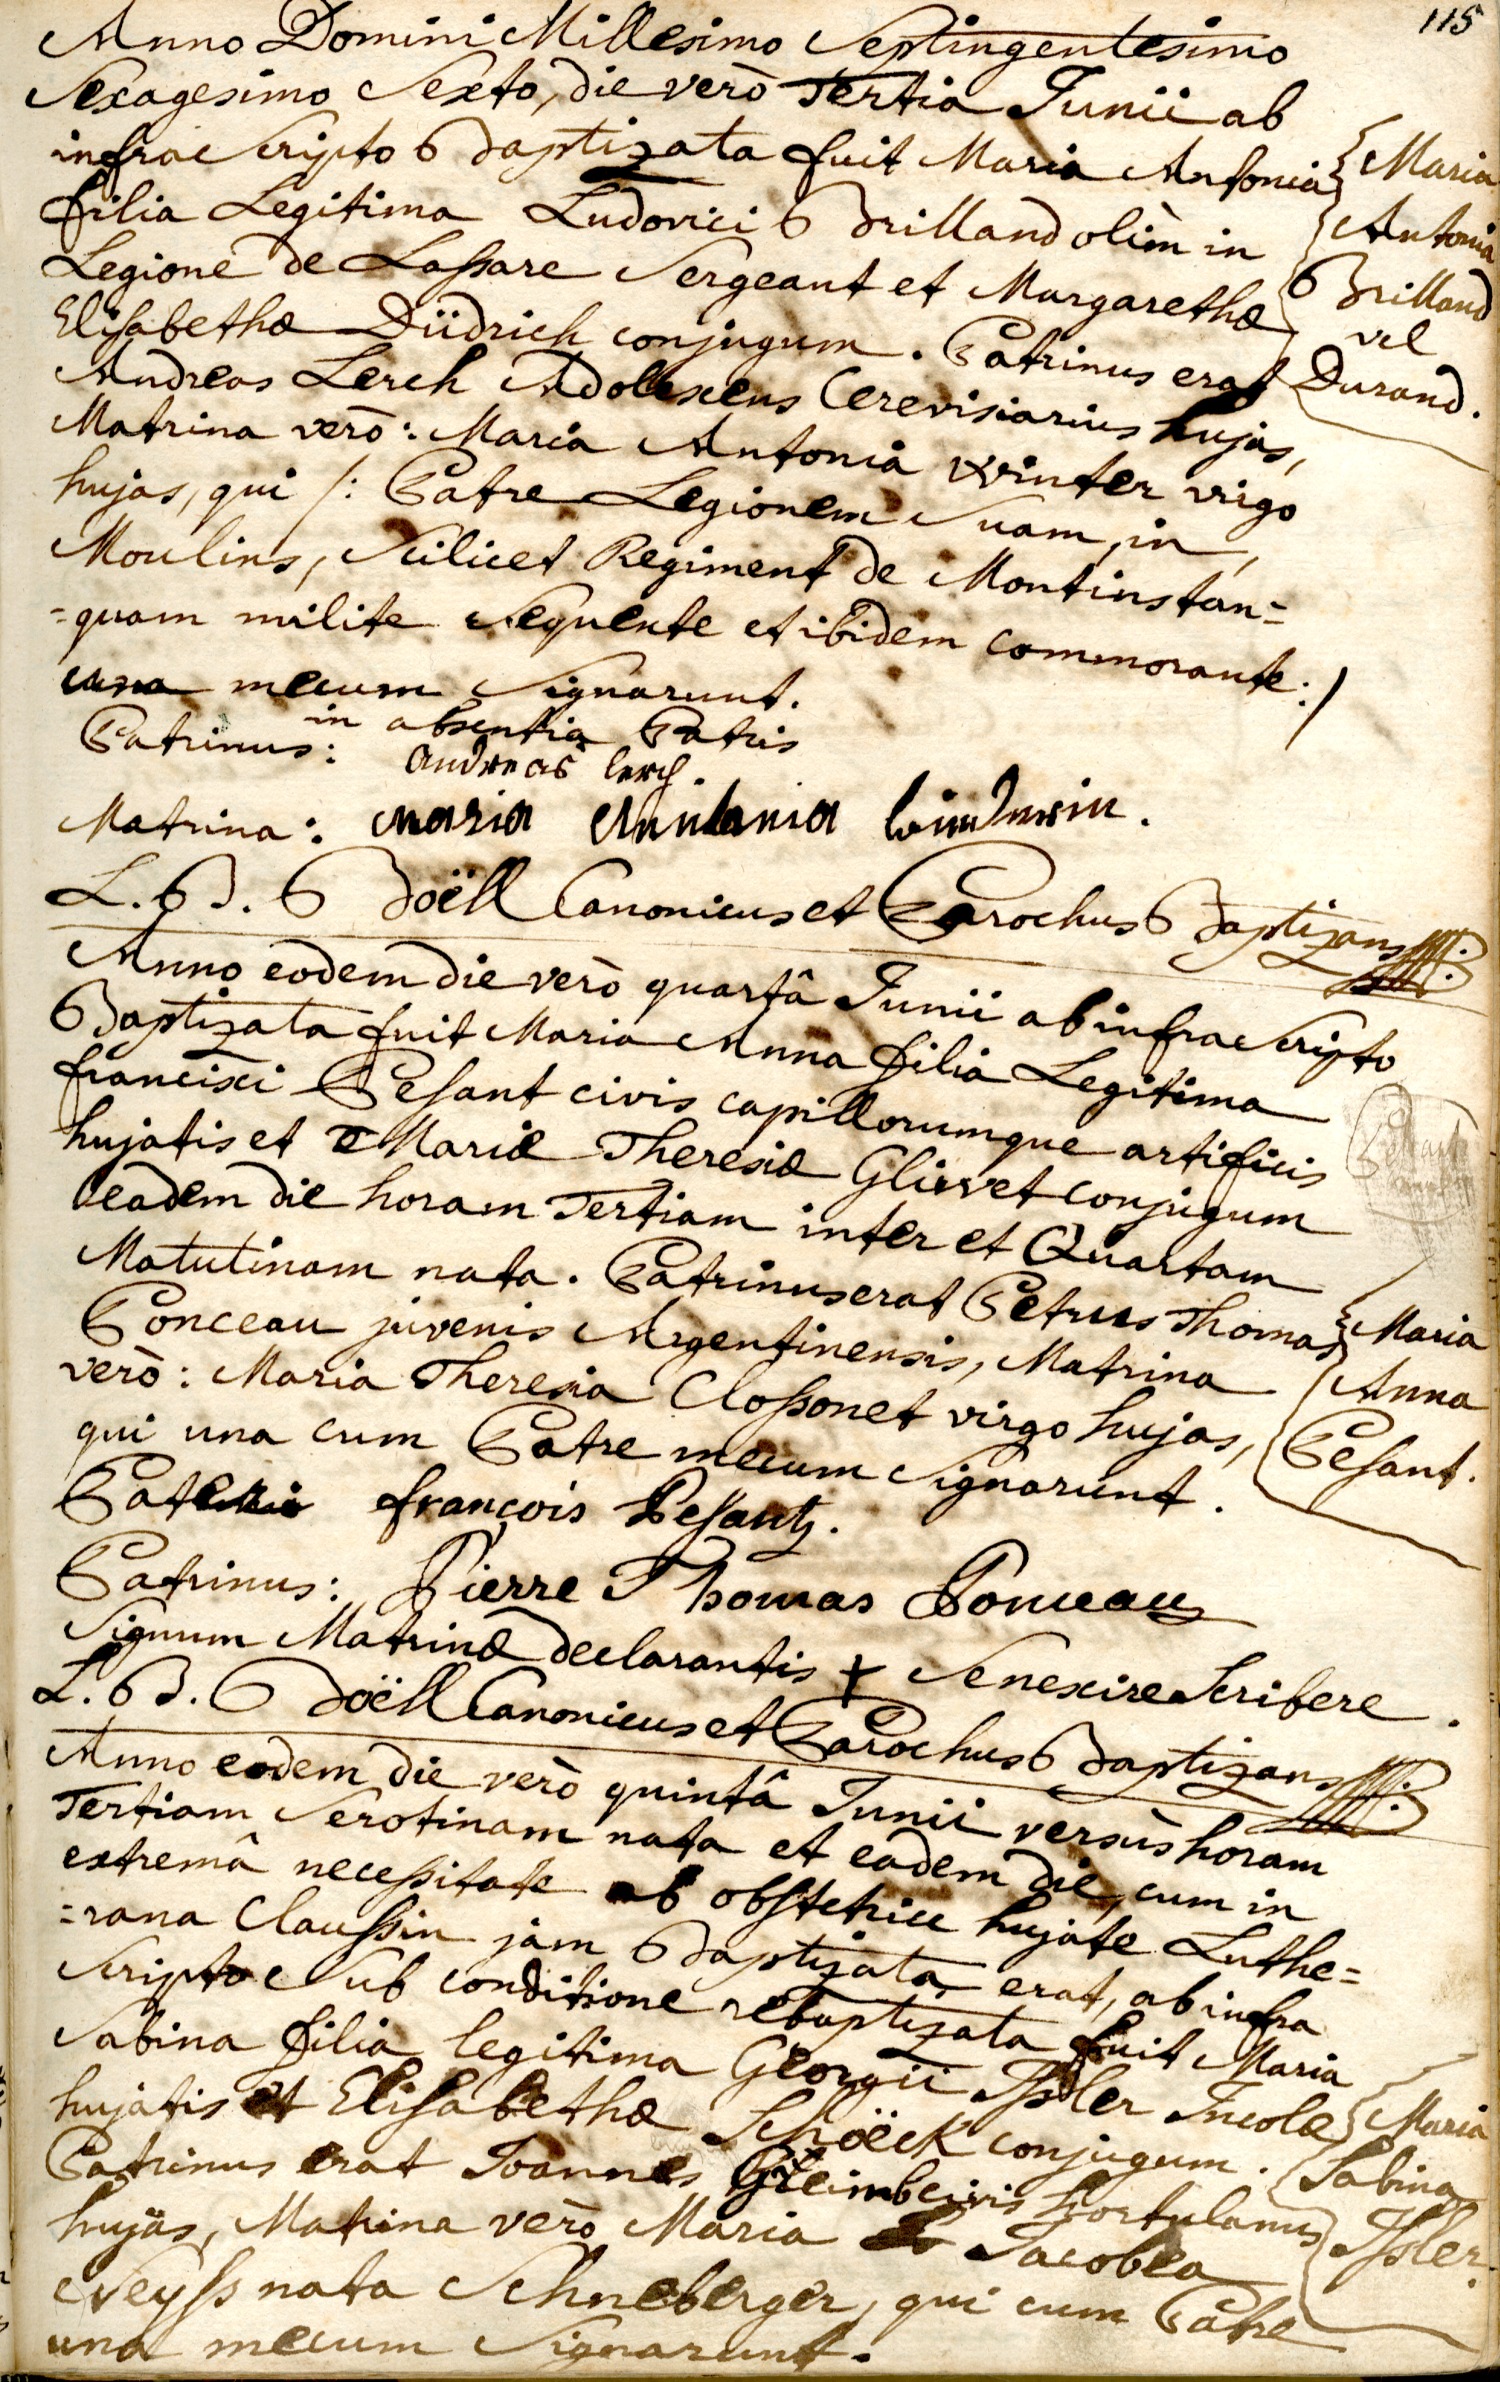 115
Anno Domini Millesimo Septingentesimo
Sexagesimo Sexto, die verò Tertia Junii ab
infrascripto Baptizata fuit Maria Antonia
filia Legitima Ludovici Brilland olim in
Legione de Lassare Sergeant et Margarethæ
Elisabethæ Düdrich conjugum. Patrinus erat
Andreas Lerch Adolescens Cerevisiarius hujas,
Matrina verò: Maria Antonia Winter virgo
hujas, qui /: Patre Legionem Suam, in
Moulins, Scilicet Regiment de Montins tan=
=quam milite Sequente et ibidem commorante :/
una mecum Signarunt.
in absentia Patris
Patrinus: Andreas Lerch.
Matrina: Maria Antania
L. B. Boëll Canonicus et Parochus Baptizans
Maria
Antonia
Brilland
vel
Durand.
Anno eodem die verò quartâ Junii ab infrascripto
Baptizata fuit Maria Anna filia Legitima
francisci Pesant civis capillorumque artificis
hujatis et Mariæ Theresiæ Glirvet conjugum
eadem die horam Tertiam inter et Quartam
Matutinam nata. Patrinus erat Petrus Thomas
Ponceau juvenis Argentinensis, Matrina
verò: Maria Theresia Clossonet virgo hujas,
qui una cum Patre mecum Signarunt.
françois Pesant.
Patrinus: Pierre Thomas Ponceau
Signum Matrinæ declarantis + Se nescire Scribere.
L. B. Boëll Canonicus et Parochus Baptizans
Maria
Anna
Pesant.
Anno eodem die verò quintâ Junii versùs horam
Tertiam Serotinam nata et eadem die, cum in
extremâ necessitate ab obstetrice hujate Luthe=
=rana Claussin jam Baptizata erat, ab infra
Scripto Sub conditione rebaptizata fuit Maria
Sabina filia legitima Georgii Issler Incolæ
hujatis et Elisabethæ Schöeck conjugum.
Patrinus erat Joannes civis hortulanus
hujas, Matrina verò Maria Jacobea
Weyss nata Schneberger, qui cum Patre
una mecum Signarunt.
Maria
Sabina
Issler.